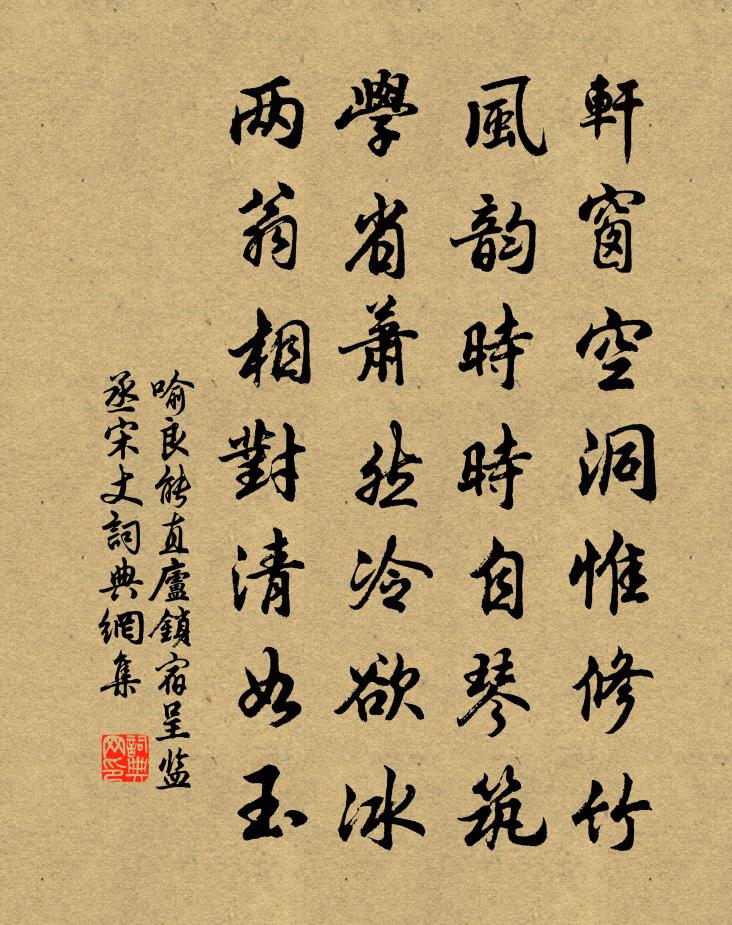 軒窗空洞惟修竹
風韵時時自琴筑
學省蕭然冷欲冰
两翁相對清如玉
喻良能直廬鎖宿呈监
丞宋丈詞典網集
詞典
网印